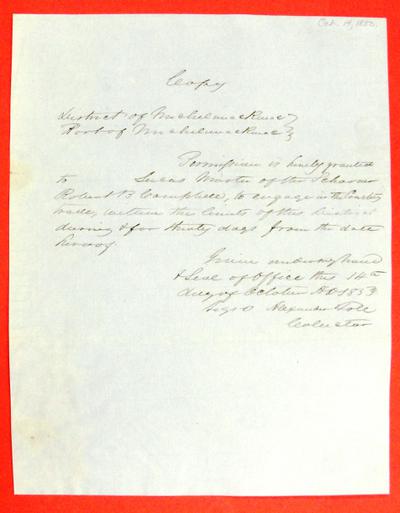 Oct. 14, 1853.
Copy
District of Michilimackinac
Port of Michilimackinac
Permission is hereby granted
to Lucas Master of the Schooner
Robert B Campbell, to engage in the Coasting
trade, within the limits of this District
during & for thirty days from the date
hereof
Given under my hand
& Seal of Office this 14th
day of October AD 1853
Signd Alexander Toll
Collector